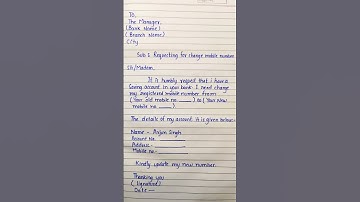 To,
The Manager,
(Bank Name)
(Branch Name)
City
Sub: Requesting for change mobile number
Sir/Madam,
It is humbly request that i have a
Saving account in your bank. I need change
my registered mobile number from
(Your old mobile no ___) to (Your New
mobile no ___).
The details of my account A is given below:-
Name - Anjum Singh
Account No. ________
Address - ________
Mobile no:- ________
Kindly update my new number.
Thanking you
(Signature)
Date —